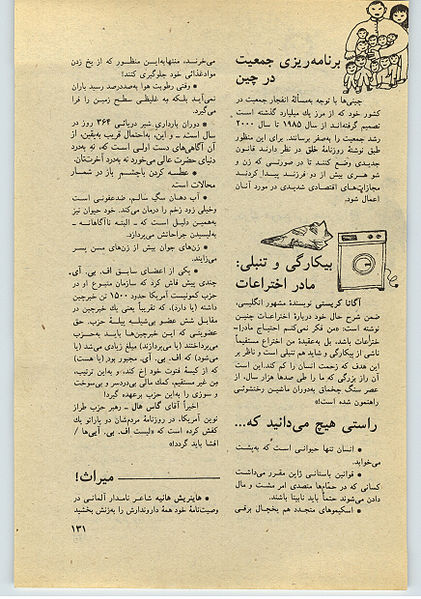 برنامه‌ریزی جمعیت
در چین
چینی‌ها با توجه به‌مسألهٔ انفجار جمعیت در
کشور خود که از مرز یك میلیارد گذشته است
تصمیم گرفته‌اند از سال ۱۹۸۵ تا سال ۲۰۰۰
رشد جمعیت را به‌صفر برسانند. برای این منظور
طبق نوشتهٔ روزنامهٔ خلق در نظر دارند قانون
جدیدی وضع کنند تا در صورتی که زن و
شوهری بیش از دو فرزند پیدا کردند
مجازات‌های اقتصادی شدیدی در مورد آنان
اعمال شود.
بیکارگی و تنبلی:
مادر اختراعات
آگاتا کریستی نویسندهٔ مشهور انگلیسی،
ضمن شرح حال خود دربارهٔ اختراعات چنین
نوشته است: «من فکر نمی‌کنم احتیاج مادر
ختراعات باشد، بل به‌عقیدهٔ من اختراع مستقیماً
ناشی از بیکارگی و شاید هم تنبلی است و ناظر بر
این هدف که زحمت انسان را کم کند. این است
آن راز بزرگی که ما را طی صدها هزار سال، از
عصر سنگ چخماق به‌دوران ماشین رختشوئی
راهنمون شده است!»
راستی هیچ می‌دانید که...
• انسان تنها حیوانی است که به‌پشت
می‌خوابد.
• قوانین باستانی ژاپن مقرر می‌داشت
کسانی که در حمّام‌ها متصدی امر مشت و مال
دادن می‌شوند حتماً باید نابینا باشند.
• اسکیموهای متجدد هم یخچال برقی
می‌خرند، منتهابه‌این منظور که از یخ زدن
موادغذائی خود جلوگیری کنند!
• وقتی رطوبت هوا به‌صددرصد رسید باران
نمی‌آید بلکه مه غلیظی سطح زمین را فرا
می‌گیرد.
• دوران بارداری شیر دریائی ۳۶۴ روز در
سال است. و این، به‌احتمال قریب به‌یقین، از
آن آگاهی‌های دست اولی است که، نه به‌درد
دنیای حضرت عالی می‌خورد نه به‌درد آخرتتان.
• عطسه کردن باچشم باز در شمار
محالات است.
• آب دهان سگ سالم، ضدعفونی است
وخیلی زود زخم را درمان می‌کند. خود حیوان نیز
به‌همین دلیل است که - البته ناآگاهانه -
به‌لیسیدن جراحاتش می‌پردازد.
• زن‌های جوان بیش از زن‌های مسن پسر
می‌زایند.
• یکی از اعضای سابق اف. بی. آی.
چندی پیش فاش کرد که سازمان متبوع او در
حزب کمونیست آمریکا حدود ۱۵۰۰ تن خبرچین
داشته (یا دارد)، که تقریباً یعنی یك خبرچین در
مقابل شش عضو بی‌شیله پیلهٔ حزب. حق
عضویتی که این خبرچین‌ها باید به‌حزب
می‌پرداختند (یا می‌پردازند) مبلغ زیادی می‌شد (یا
می‌شود) که اف. بی. آی. مجبور بود (یا هست)
که از کیسهٔ فتوت خود اخ کند، و به‌این ترتیب،
مِن غیر مستقیم، کمك مالی بی‌دردسر و بی‌سوخت
و سوزی را به‌این حزب برعهده گیرد!
اخیراً آقای گاس هال - رهبر حزب طراز
نوین آمریکا، در روزنامهٔ مردمشان در پارانو یك
کفش کرده است که «لیست اف. بی. آیی‌ها /
افشا باید گردد!»
میراث!
• هاینریش هاینه شاعر نامدار آلمانی در
وصیت‌نامهٔ خود همهٔ داروندارش را به‌زنش بخشید
۱۳۱